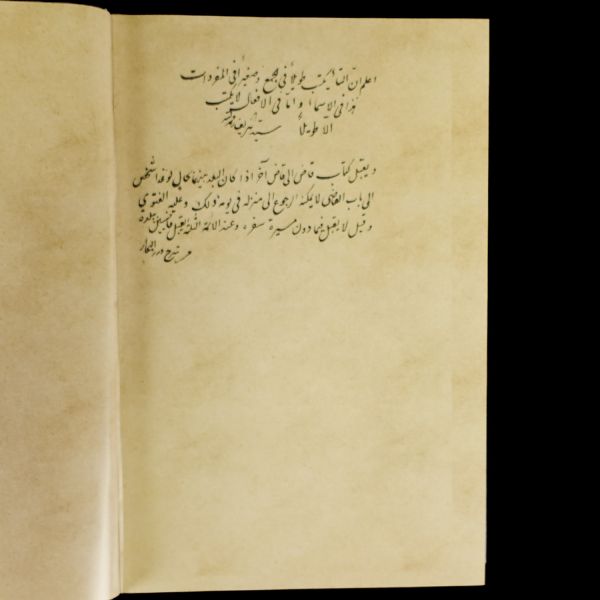 اعلم ان التاء يكتب طويلا في جمع وصغيرا في المفردات
هذا في الاسماء واما في الافعال لا يكتب
الا طويلا
ويقبل كتاب قاض الى قاض آخر اذا كان البلد بينهما بحال لو غدا شخص
الى باب القاضي لا يمكنه الرجوع الى منزله في يومه ذلك وعليه الفتوى
وقيل لا يقبل فيما دون مسيرة سفر وعند الائمة الثلثة يقبل
شرح درر البحار